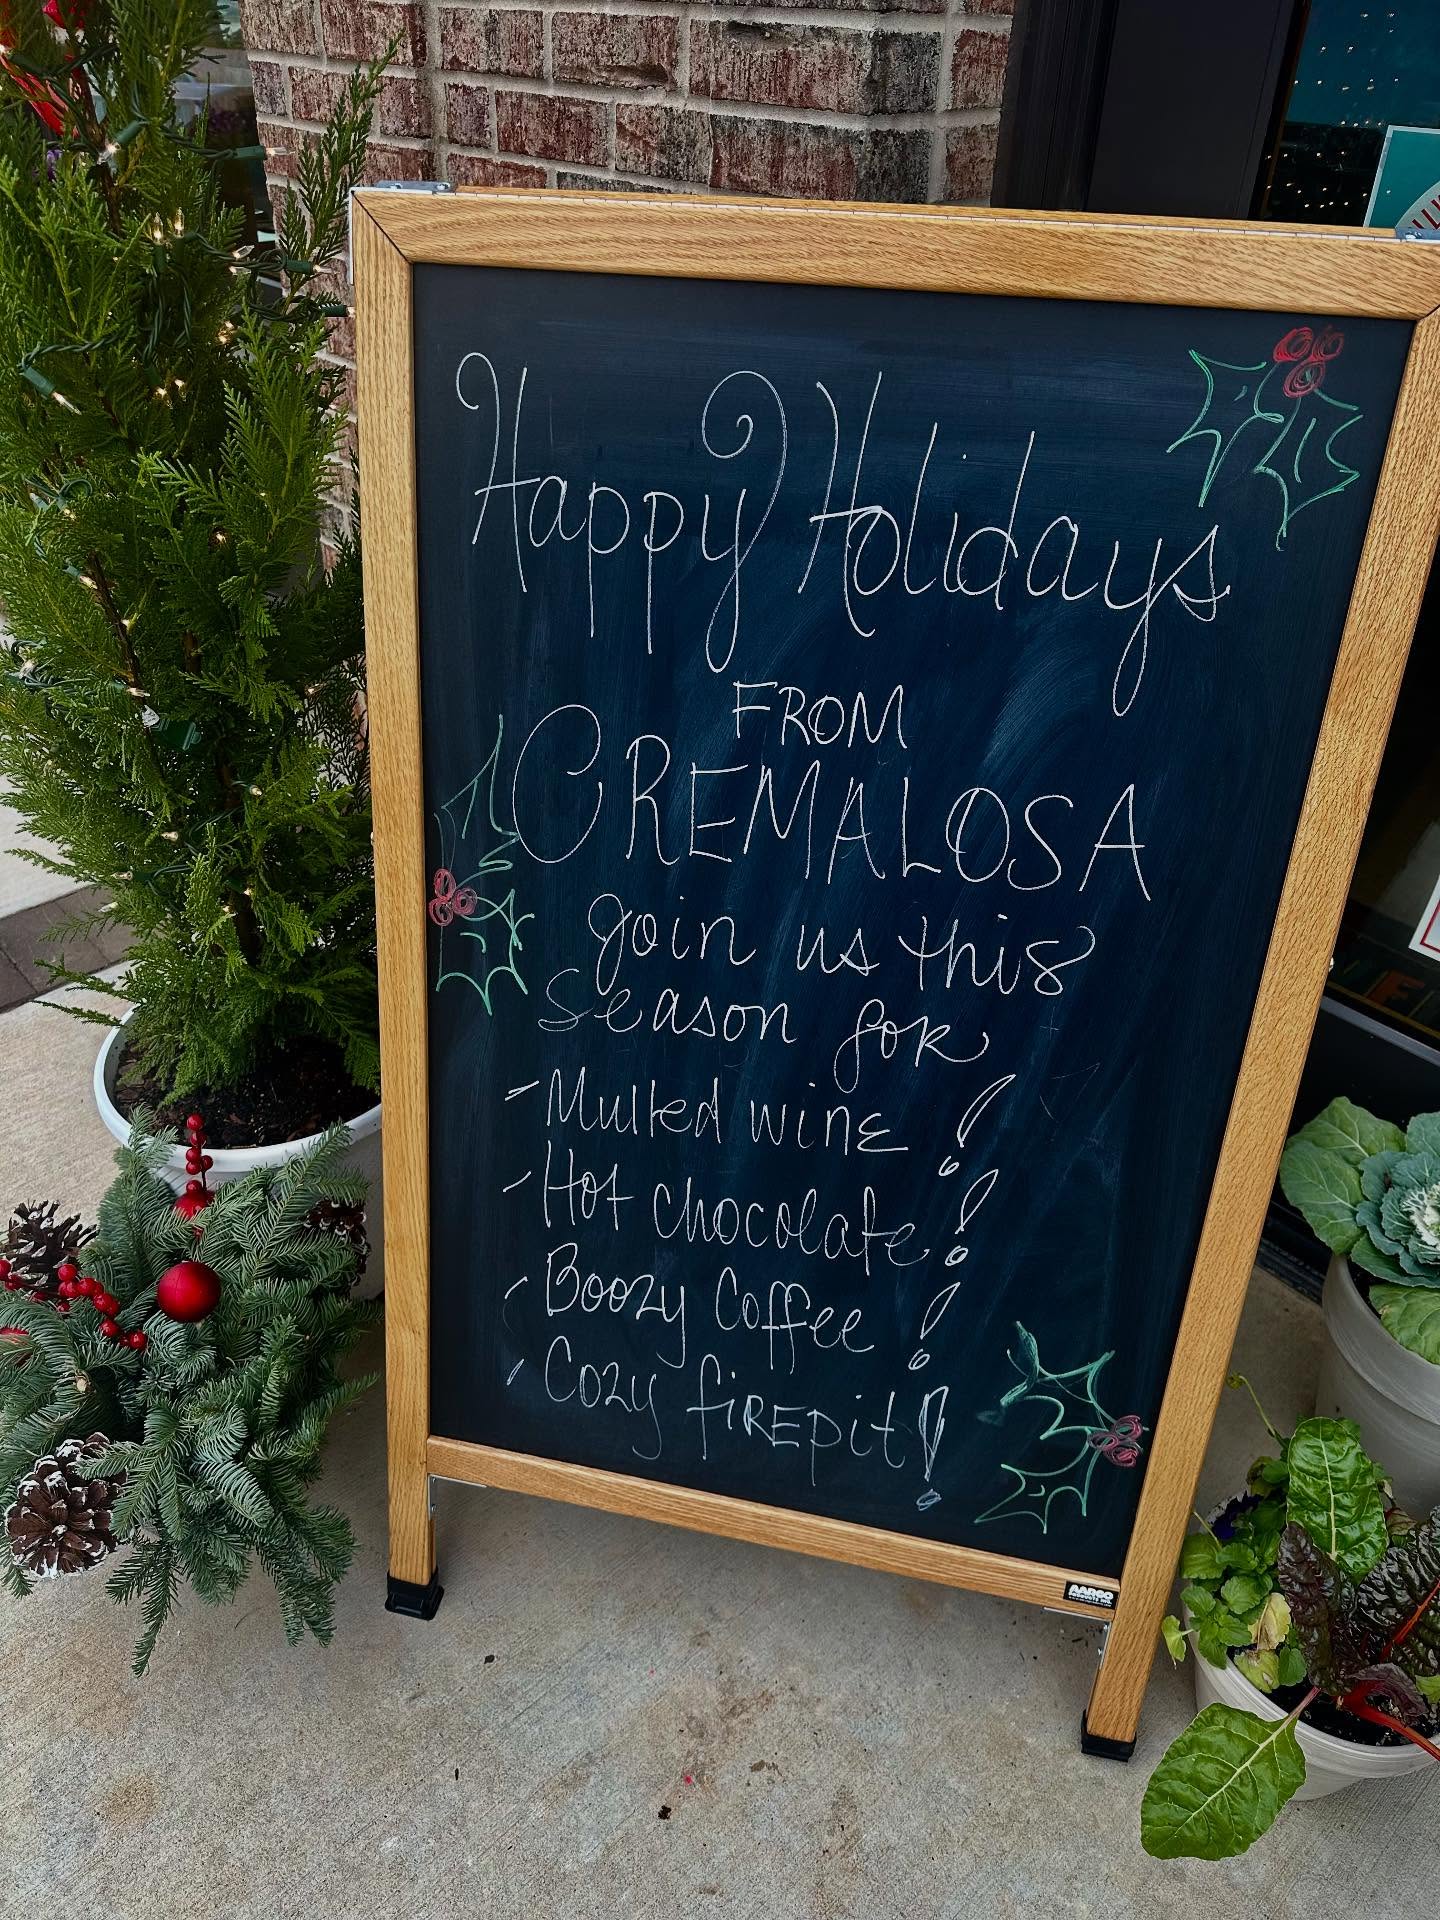 Happy Holidays
FROM
CREMALOSA
Join us this
season for
- Mulled wine!
- Hot chocolate!
- Boozy Coffee!
- Cozy firepit!
AARCO